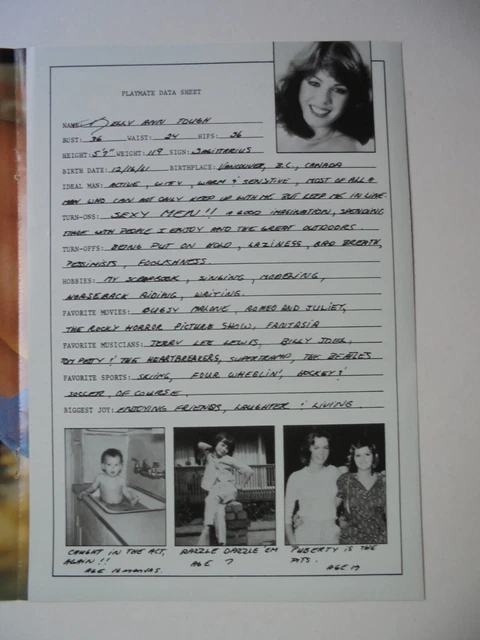 PLAYMATE DATA SHEET
NAME: KELLY ANN TOUGH
BUST: 36 WAIST: 24 HIPS: 36
HEIGHT: 5'7" WEIGHT: 119 SIGN: SAGITTARIUS
BIRTH DATE: 12/16/61 BIRTHPLACE: VANCOUVER, B.C., CANADA
IDEAL MAN: ACTIVE, WITTY, WARM & SENSITIVE, MOST OF ALL A
MAN WHO CAN NOT ONLY KEEP UP WITH ME BUT KEEP ME IN LINE.
TURN-ONS: SEXY MEN!! A GOOD IMAGINATION, SPENDING
TIME WITH PEOPLE I ENJOY AND THE GREAT OUTDOORS.
TURN-OFFS: BEING PUT ON HOLD, LAZINESS, BAD BREATH,
PESSIMISTS, FOOLISHNESS.
HOBBIES: MY SCRAPBOOK, SINGING, MODELING,
HORSEBACK RIDING, WRITING.
FAVORITE MOVIES: BUGSY MALONE, ROMEO AND JULIET,
THE ROCKY HORROR PICTURE SHOW, FANTASIA
FAVORITE MUSICIANS: JERRY LEE LEWIS, BILLY JOEL,
TOM PETTY & THE HEARTBREAKERS, SUPERTRAMP, THE BEATLES
FAVORITE SPORTS: SKIING, FOUR WHEELIN', HOCKEY &
SOCCER, OF COURSE.
BIGGEST JOY: ENJOYING FRIENDS, LAUGHTER & LIVING.
CAUGHT IN THE ACT,
AGAIN!!
AGE 18 MONTHS.
RAZZLE DAZZLE 'EM
AGE 7
PUBERTY IS THE
PITS.
AGE